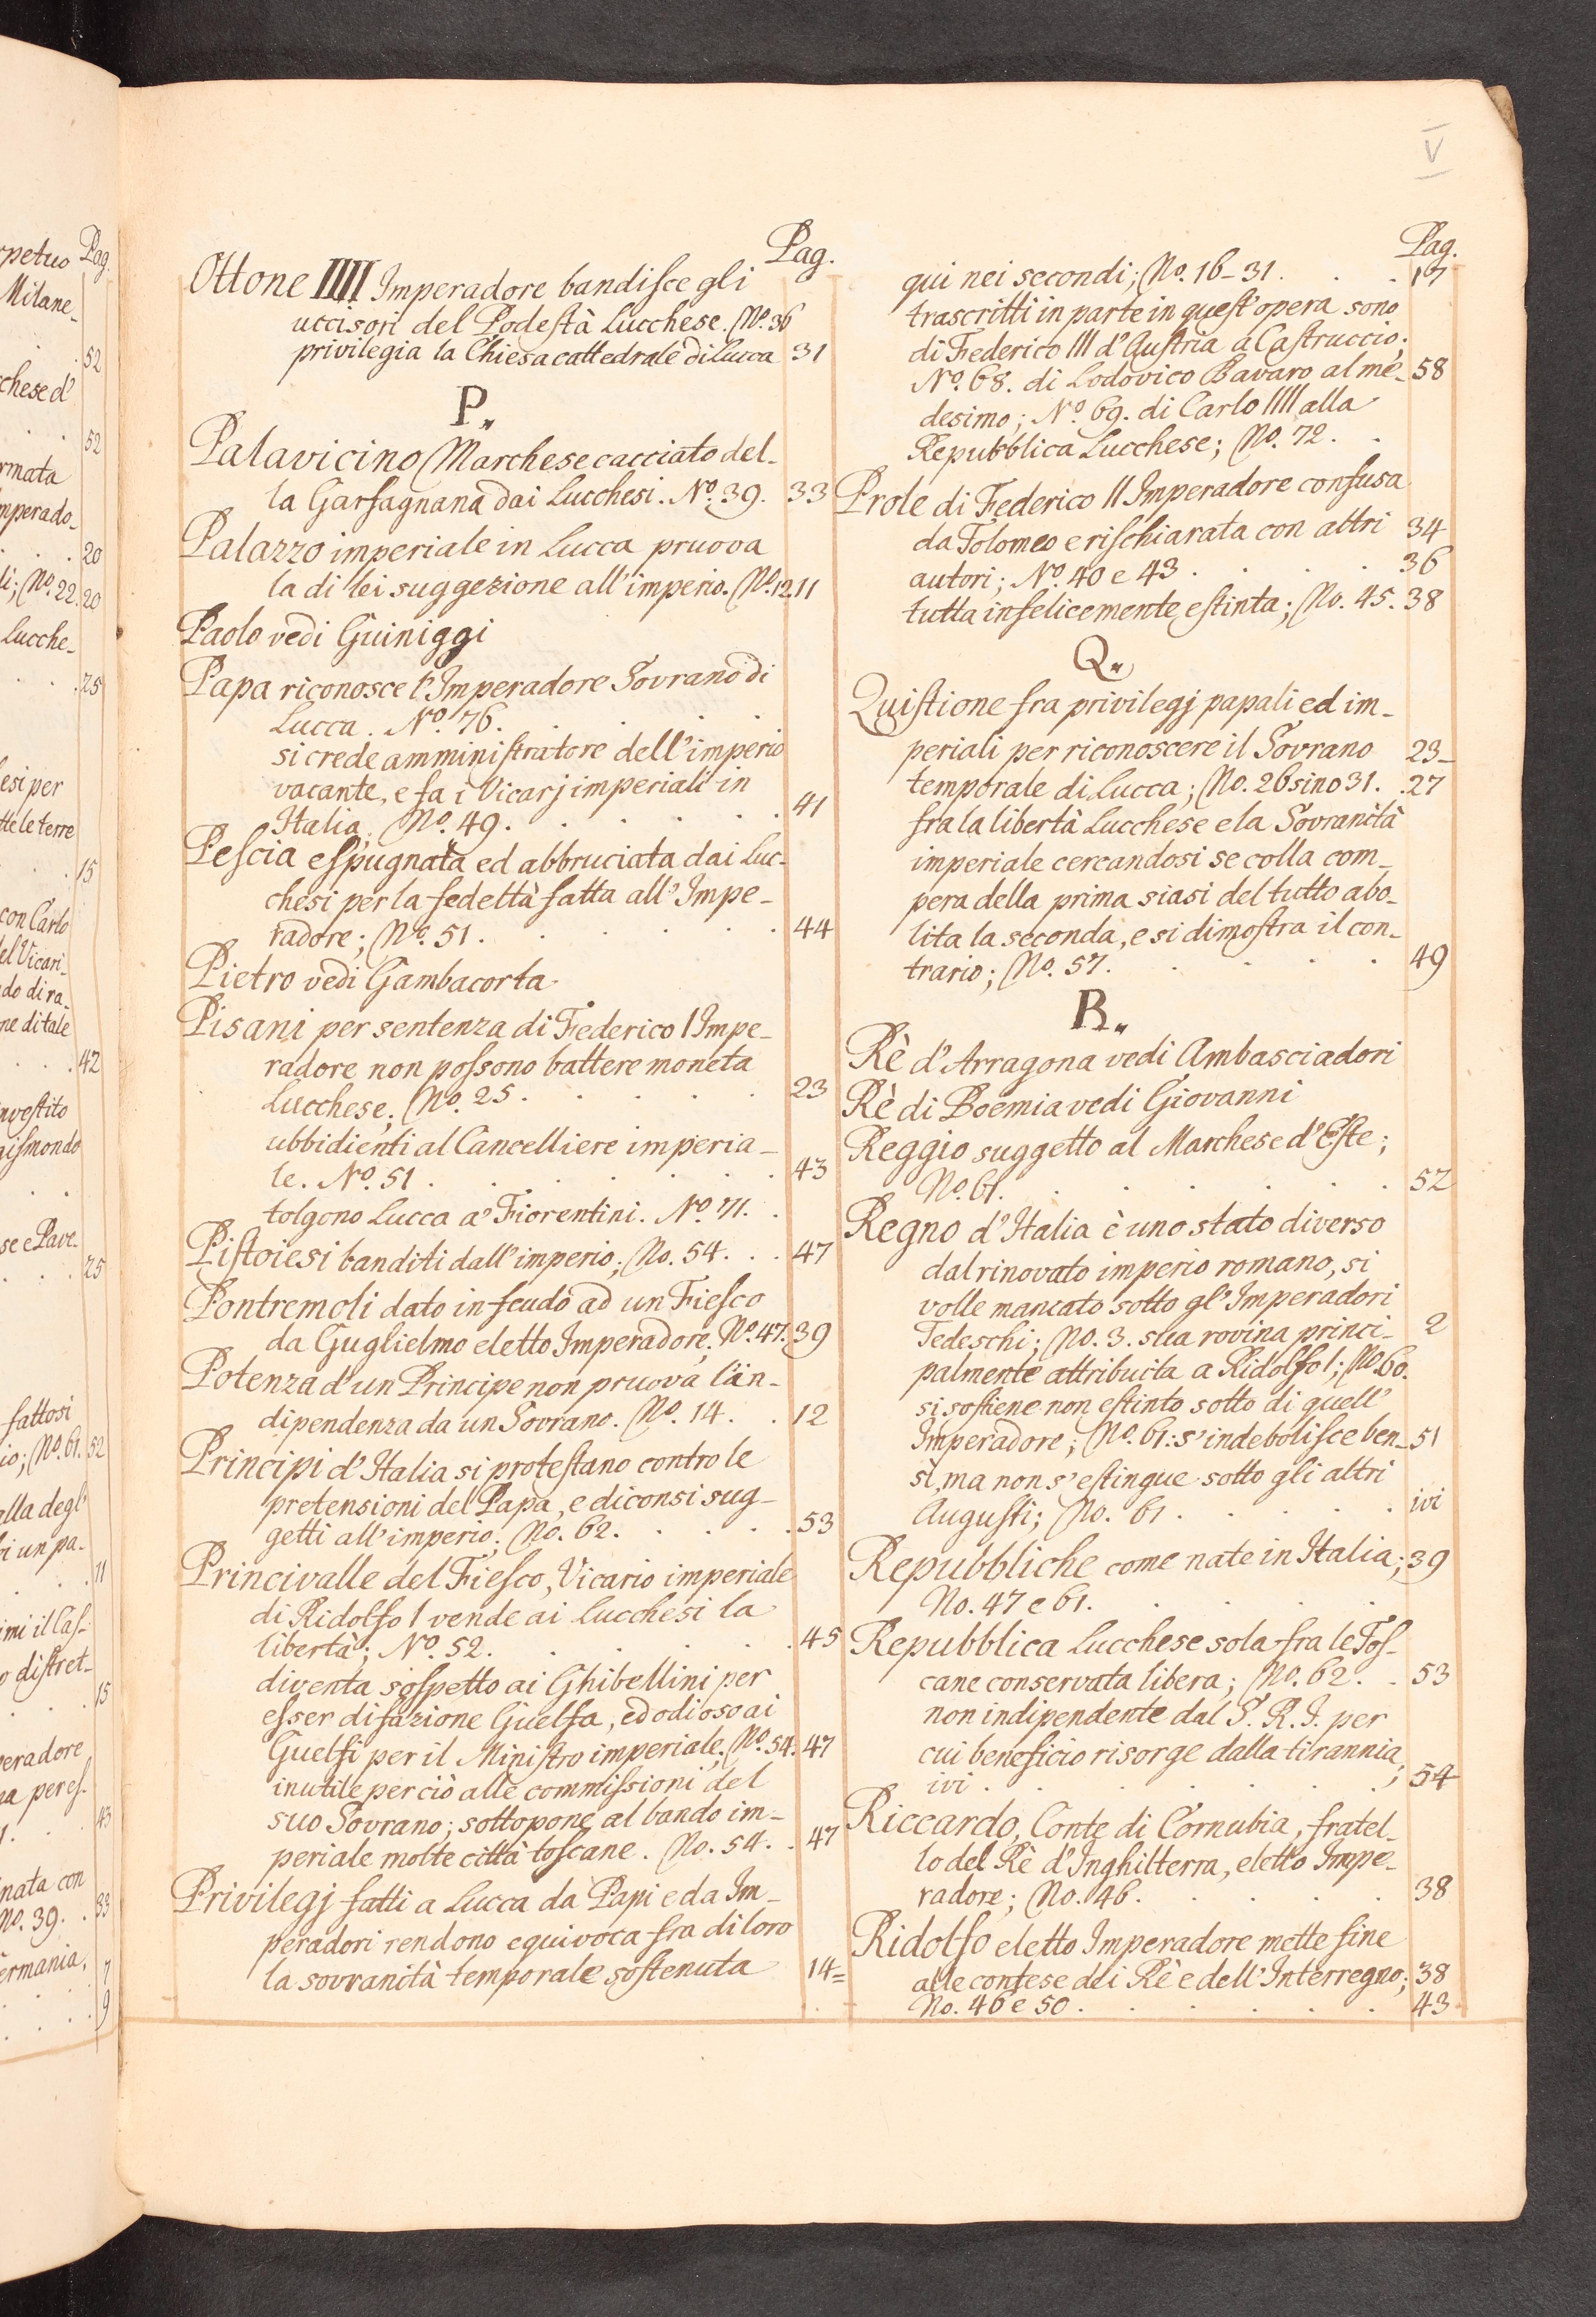 V
Pag.
Ottone IIII Imperadore bandisce gli
uccisori del Podestà Lucchese. No. 36
privilegia la Chiesa cattedrale di Lucca 31
P„
Palavicino Marchese cacciato del-
la Garfagnana dai Lucchesi. No. 39. 33
Palazzo imperiale in Lucca pruova
la di lei suggezione all'imperio. No. 12 11
Paolo vedi Guiniggi
Papa riconosce l'Imperadore Sovrano di
Lucca. No. 76. . . .
si crede amministratore dell'imperio
vacante, e fa i Vicarj imperiali in
Italia; No. 49. . . . . . 41
Pescia espugnata ed abbruciata dai Luc-
chesi per la fedeltà fatta all'Impe-
radore; No. 51. . . . . . 44
Pietro vedi Gambacorta
Pisani per sentenza di Federico I Impe-
radore non possono battere moneta
Lucchese. No. 25. . . . . 23
ubbidienti al Cancelliere imperia-
le. No. 51. . . . . . . 43
tolgono Lucca a' Fiorentini. No. 71. .
Pistoiesi banditi dall'imperio; No. 54. . . 47
Pontremoli dato in feudo ad un Fiesco
da Guglielmo eletto Imperadore; No. 47. 39
Potenza d'un Principe non pruova l'in-
dipendenza da un Sovrano. No. 14. . 12
Principi d'Italia si protestano contro le
pretensioni del Papa, e diconsi sug-
getti all'imperio; No. 62. . . . . 53
Princivalle del Fiesco, Vicario imperiale
di Ridolfo I vende ai Lucchesi la
libertà; No. 52. . . . . . 45
diventa sospetto ai Ghibellini per
esser di fazione Guelfa, ed odioso ai
Guelfi per il Ministro imperiale; No. 54. 47
inutile perciò alle commissioni del
suo Sovrano; sottopone al bando im-
periale molte città toscane. No. 54. . 47
Privilegj fatti a Lucca da Papi e da Im-
peradori rendono equivoca fra di loro
la sovranità temporale sostenuta 14=
Pag.
qui nei secondi; No. 16-31. . . 17
trascritti in parte in quest'opera sono
di Federico III d'Austria a Castruccio;
No. 68. di Lodovico Bavaro al me- 58
desimo; No. 69. di Carlo IIII alla
Repubblica Lucchese; No. 72. .
Prole di Federico II Imperadore confusa
da Tolomeo e rischiarata con altri 34
autori; No. 40 e 43. . . . 36
tutta infelicemente estinta; No. 45. 38
Q„
Quistione fra privilegj papali ed im-
periali per riconoscere il Sovrano 23-
temporale di Lucca; No. 26 sino 31. . 27
fra la libertà Lucchese e la Sovranità
imperiale cercandosi se colla com-
pera della prima siasi del tutto abo-
lita la seconda, e si dimostra il con-
trario; No. 57. . . . . 49
R„
Rè d'Arragona vedi Ambasciadori
Rè di Boemia vedi Giovanni
Reggio suggetto al Marchese d'Este;
No. 61. . . . . . . 52
Regno d'Italia è uno stato diverso
dal rinovato imperio romano, si
volle mancato sotto gl'Imperadori
Tedeschi; No. 3. sua rovina princi- 2
palmente attribuita a Ridolfo I; No. 60.
si sostiene non estinto sotto di quell'
Imperadore; No. 61: s'indebolisce ben- 51
sì, ma non s'estingue sotto gli altri
Augusti; No. 61. . . . . ivi
Repubbliche come nate in Italia; 39
No. 47 e 61. . . . .
Repubblica Lucchese sola fra le Tos-
cane conservata libera; No. 62. . 53
non indipendente dal S. R. I. per
cui beneficio risorge dalla tirannia;
ivi . . . . . . 54
Riccardo, Conte di Cornubia, fratel-
lo del Rè d'Inghilterra, eletto Impe-
radore; No. 46. . . . . 38
Ridolfo eletto Imperadore mette fine
alle contese dei Rè e dell'Interregno; 38
No. 46 e 50. . . . . . 43